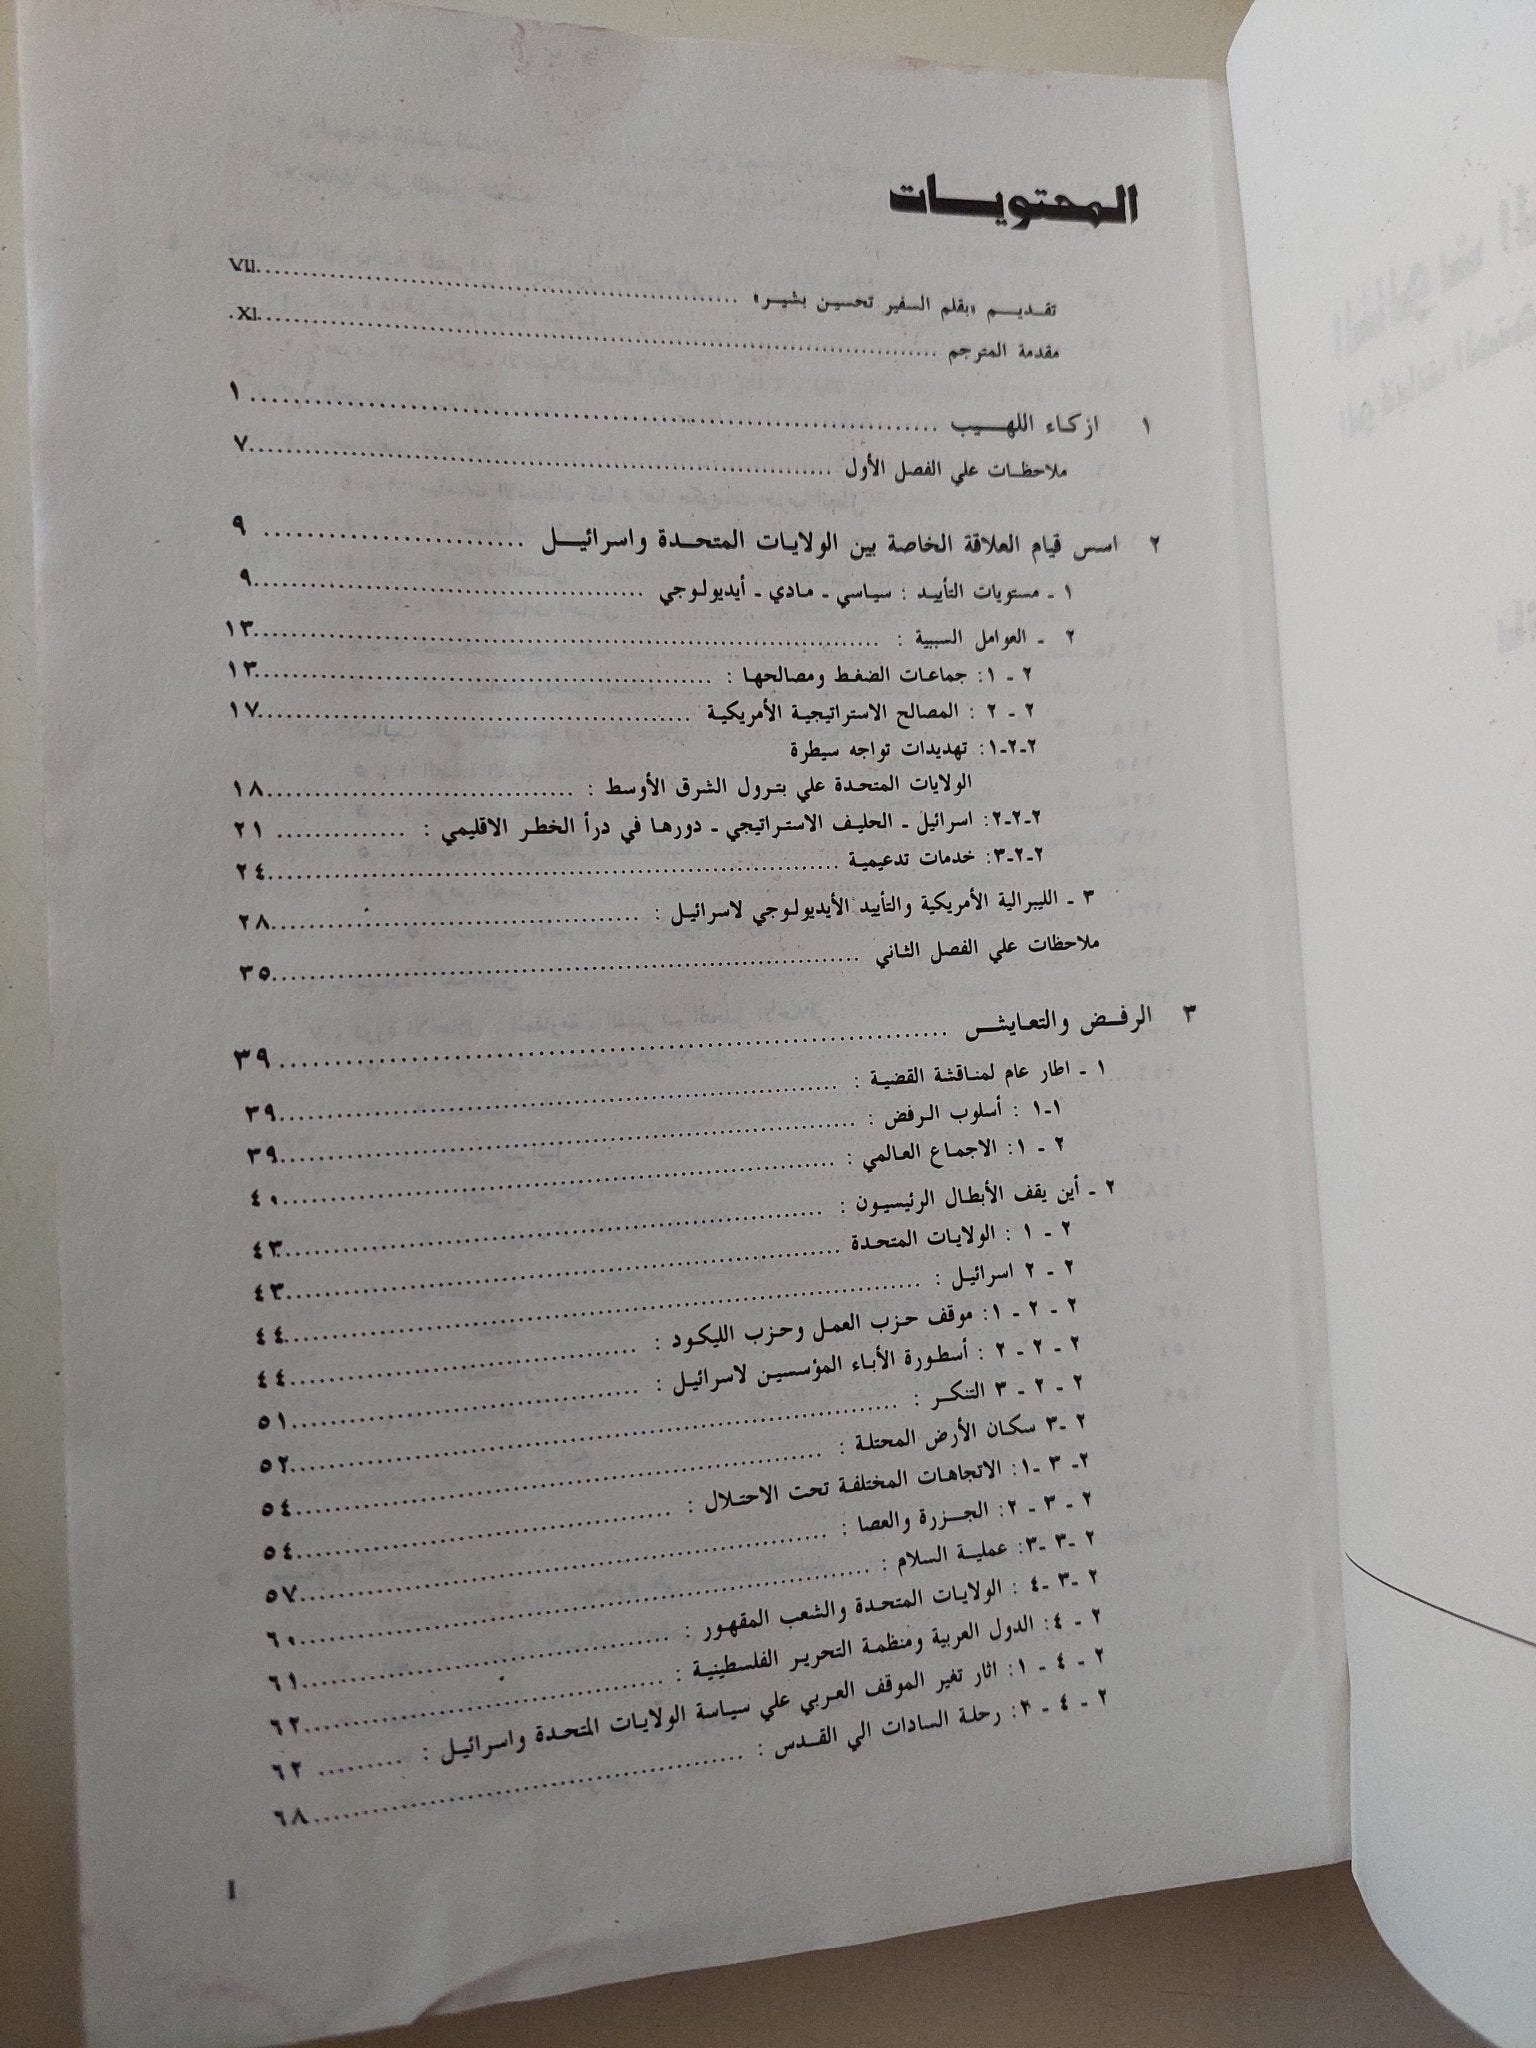 المحتويات
تقديم «بقلم السفير تحسين بشير» ........ VII
مقدمة المترجم ........ XI
١ ازكاء اللهيب ........ ١
ملاحظات علي الفصل الأول ........ ٧
٢ اسس قيام العلاقة الخاصة بين الولايات المتحدة واسرائيل ........ ٩
١ ـ مستويات التأييد : سياسي ـ مادي ـ أيديولوجي ........ ٩
٢ ـ العوامل السببية : ........ ١٣
٢ ـ ١: جماعات الضغط ومصالحها : ........ ١٣
٢ ـ ٢ : المصالح الاستراتيجية الأمريكية ........ ١٧
٢ـ٢ـ١: تهديدات تواجه سيطرة
الولايات المتحدة علي بترول الشرق الأوسط : ........ ١٨
٢ـ٢ـ٢: اسرائيل ـ الحليف الاستراتيجي ـ دورها في درأ الخطر الاقليمي : ........ ٢١
٢ـ٢ـ٣: خدمات تدعيمية ........ ٢٤
٣ ـ الليبرالية الأمريكية والتأييد الأيديولوجي لاسرائيل : ........ ٢٨
ملاحظات علي الفصل الثاني ........ ٣٥
٣ الرفض والتعايش ........ ٣٩
١ ـ اطار عام لمناقشة القضية : ........ ٣٩
١ـ١ : أسلوب الرفض : ........ ٣٩
٢ ـ ١: الاجماع العالمي : ........ ٤٠
٢ ـ أين يقف الأبطال الرئيسيون : ........ ٤٣
٢ ـ ١ : الولايات المتحدة ........ ٤٣
٢ ـ ٢ اسرائيل : ........ ٤٤
٢ ـ ٢ ـ ١: موقف حزب العمل وحزب الليكود : ........ ٤٤
٢ ـ ٢ ـ ٢ : أسطورة الأباء المؤسسين لاسرائيل : ........ ٥١
٢ ـ ٢ ـ ٣ التنكر : ........ ٥٢
٢ ـ٣ سكان الأرض المحتلة : ........ ٥٤
٢ـ ٣ ـ١: الاتجاهات المختلفة تحت الاحتلال : ........ ٥٤
٢ ـ ٣ ـ ٢: الجزرة والعصا : ........ ٥٧
٢ ـ٣ ـ٣: عملية السلام : ........ ٦٠
٢ ـ٣ ـ٤ : الولايات المتحدة والشعب المقهور : ........ ٦١
٢ ـ ٤: الدول العربية ومنظمة التحرير الفلسطينية : ........ ٦٢
٢ ـ ٤ ـ ١: اثار تغير الموقف العربي علي سياسة الولايات المتحدة واسرائيل : ........ ٦٢
٢ ـ ٤ ـ ٢: رحلة السادات الي القدس : ........ ٦٨
I